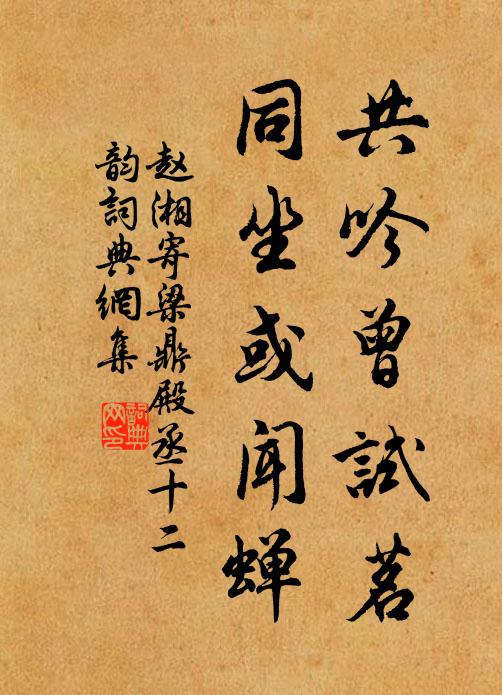 共吟曾試茗
同坐或闻蝉
赵湘寄梁鼎殿丞十二
韵詞典網集
詞典
网印